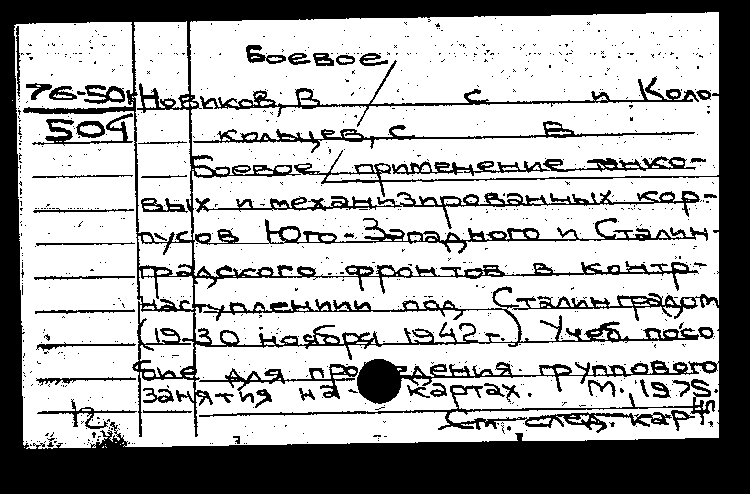 Боевое
76-50 Новиков, В С и Коло-
504 кольцев, С В
Боевое применение танко-
вых и механизированных кор-
пусов Юго-Западного и Сталин-
градского фронтов в контр-
наступлениии под Сталинградом
(19-30 ноября 1942 г.). Учеб. посо
бие для проведения группового
занятия на картах. М., 1975.
12 См. след. карт.